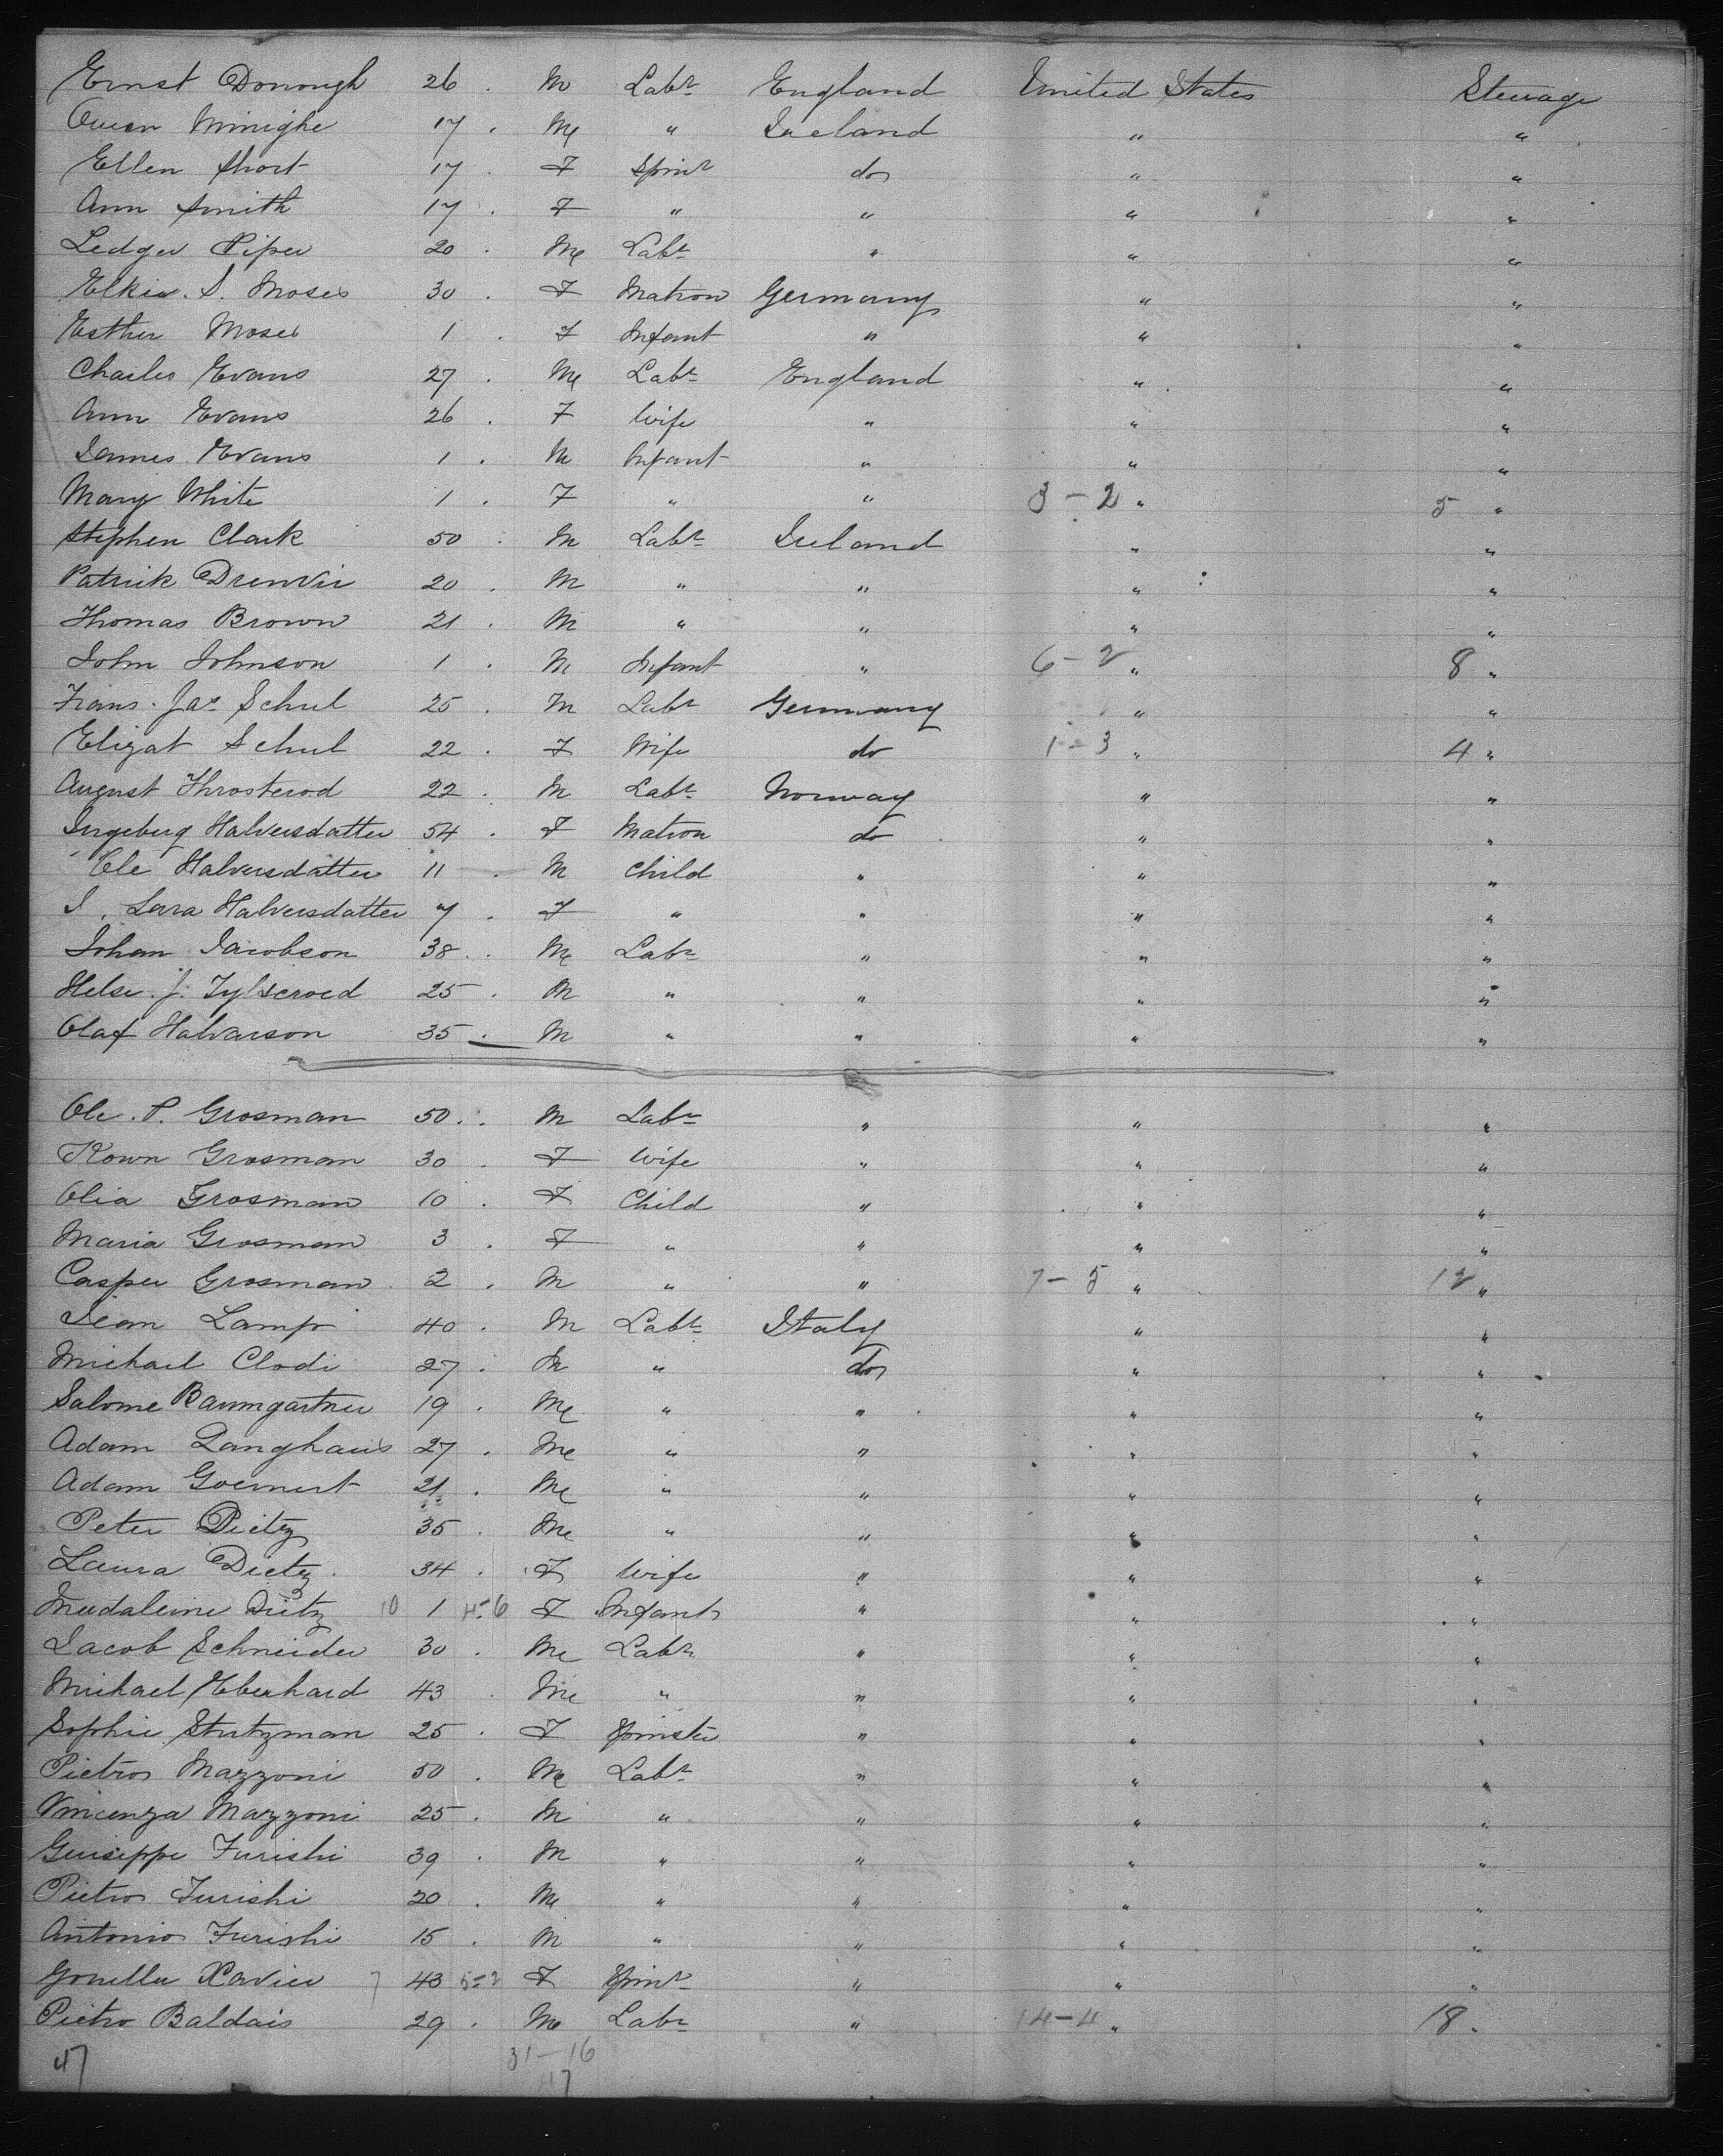 Ernst Donough 26 . M Labr England United States Steerage
Owen Minighe 17 . M " Ireland " "
Ellen Short 17 . F Spinr do " "
Ann Smith 17 . F " " " "
Ledger Piper 20 . M Labr " " "
Elkie. S. Moses 30 . F Matron Germany " "
Esther Moses 1 . F Infant " " "
Charles Evans 27 . M Labr England " "
Ann Evans 26 . F Wife " " "
James Evans 1 . M Infant " " "
Mary White 1 . F " " 3-2 " 5 "
Stephen Clark 50 . M Labr Ireland " "
Patrik 20 . M " " " "
Thomas Brown 21 . M " " " "
John Johnson 1 . M Infant " 6-2 " 8 "
Frans. Jas Schul 25 . M Labr Germany " "
Elizat Schul 22 . F Wife do 1-3 " 4 "
August Throsterod 22 . M Labr Norway " "
Ingeburg Halversdatter 54 . F Matron do " "
Ole Halversdatter 11 . M Child " " "
I. Lara Halversdatter 7 . F " " " "
Johan Jacobson 38 . M Labr " " "
Helse. J. 25 . M " " " "
Olaf Halvarson 35 . M " " " "
Ole. P. Grosman 50 . M Labr " " "
Kown Grosman 30 . F Wife " " "
Olia Grosman 10 . F Child " " "
Maria Grosman 3 . F " " " "
Casper Grosman 2 . M " " 7-5 " 12 "
Jean Lamp 40 . M Labr Italy " "
Michael Clodi 27 . M " do " "
Salome Baumgartner 19 . M " " " "
Adam Langhaus 27 . M " " " "
Adam Goernert 21 . M " " " "
Peter Dietz 35 . M " " " "
Laura Dietz 34 . F Wife " " "
Madaleine Dietz 10 1 4-6 F Infant " " "
Jacob Schneider 30 . M Labr " " "
Michael Eberhard 43 . M " " " "
Sophie Stutzman 25 . F Spinster " " "
Pietro Mazzoni 50 . M Labr " " "
Vincenza Mazzoni 25 . M " " " "
Guiseppe Furishi 39 . M " " " "
Pietro Furishi 20 . M " " " "
Antonio Furishi 15 . M " " " "
Gonella Xavier 7 43 5-2 F Spinr " " "
Pietro Baldais 29 . M Labr " 14-4 " 18 "
47 31-16
47